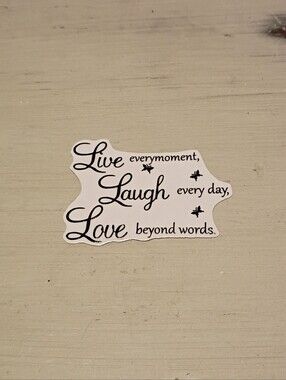 Live everymoment,
Laugh every day,
Love beyond words.